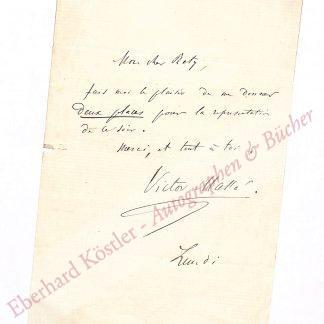 Mon cher Rety,
fais moi le plaisir de me donner
Deux places pour la représentation
de ce soir.
Merci, et tout à toi.
Victor Massé.
Lundi
Eberhard Köstler - Autographen & Bücher